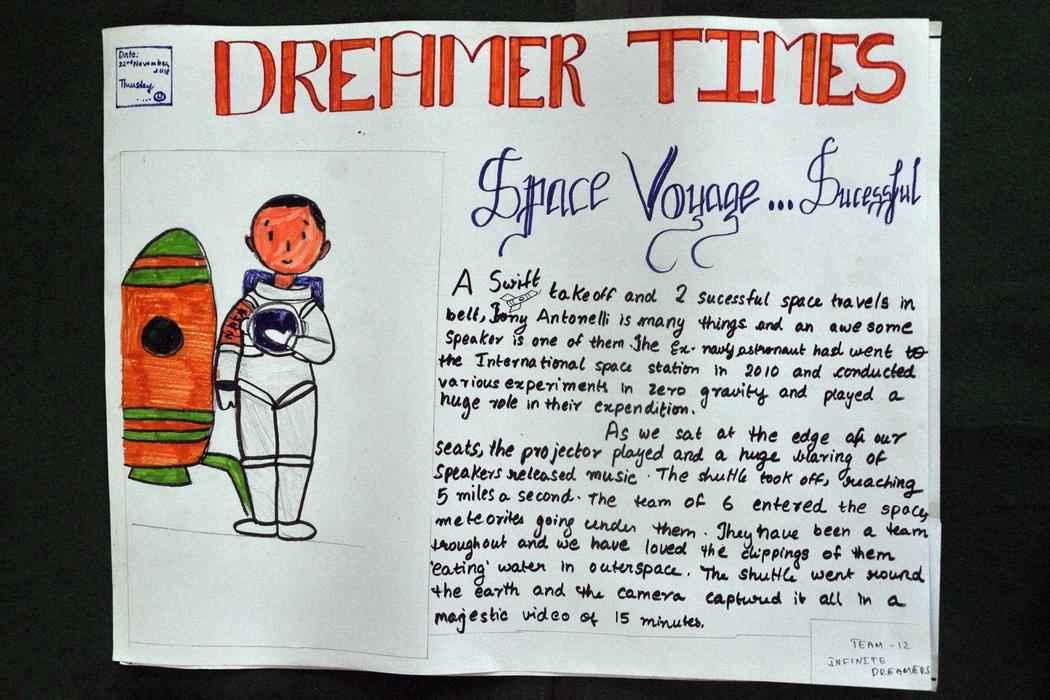 Date:
22nd November
2018
Thursday
DREAMER TIMES
Space Voyage... Sucessful
A Swift takeoff and 2 sucessful space travels in
belt, Tony Antonelli is many things and an awesome
Speaker is one of them. The Ex-navy astronaut had went to
the International space station in 2010 and conducted
various experiments in zero gravity and played a
huge role in their expendition.
As we sat at the edge of our
seats, the projector played and a huge blaring of
Speakers released music. The shuttle took off, reaching
5 miles a second. The team of 6 entered the space,
meteorites going under them. They have been a team
troughout and we have loved the clippings of them
'eating' water in outerspace. The shuttle went round
the earth and the camera captured it all in a
majestic video of 15 minutes.
TEAM - 12
INFINITE
DREAMERS